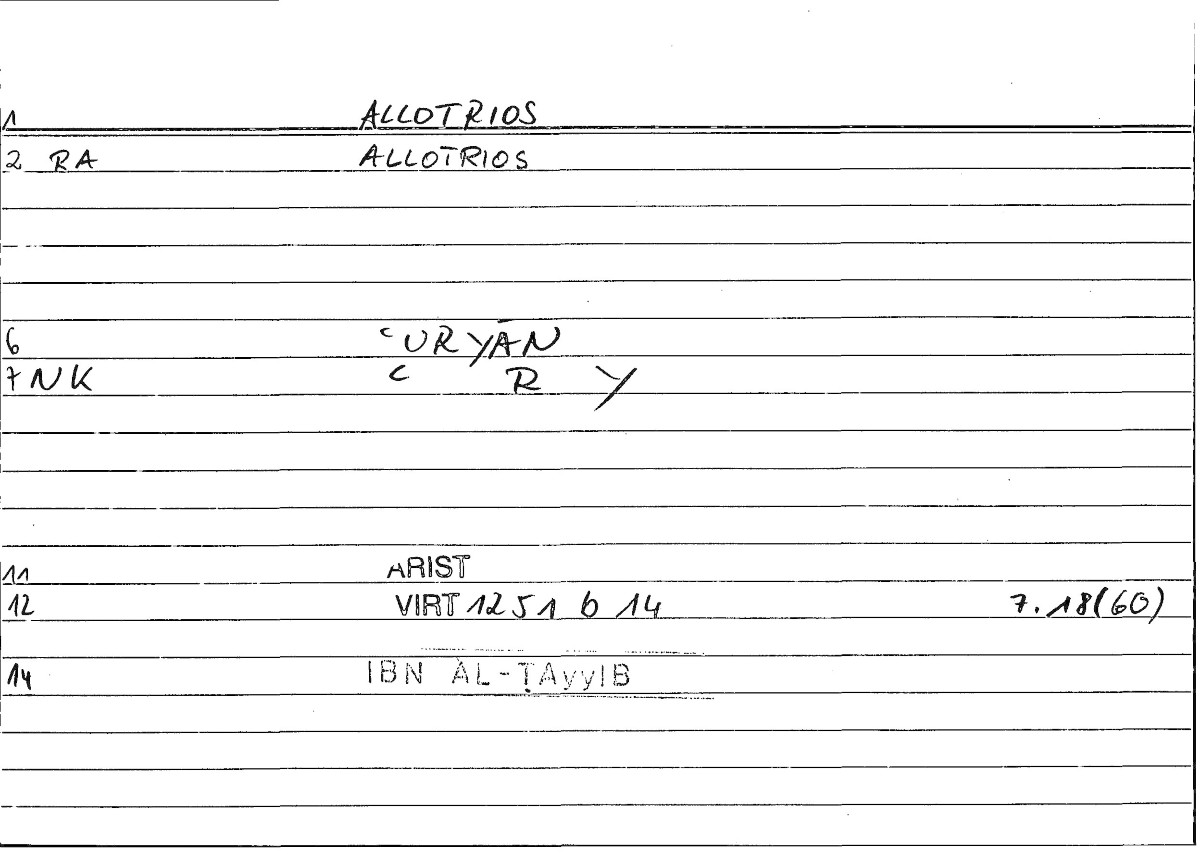 1 ALLOTRIOS
2 RA ALLOTRIOS
6 ʿURYĀN
7 NK ʿ R Y
11 ARIST
12 VIRT 1251 b 14 7.18(60)
14 IBN AL-ṬAyyIB